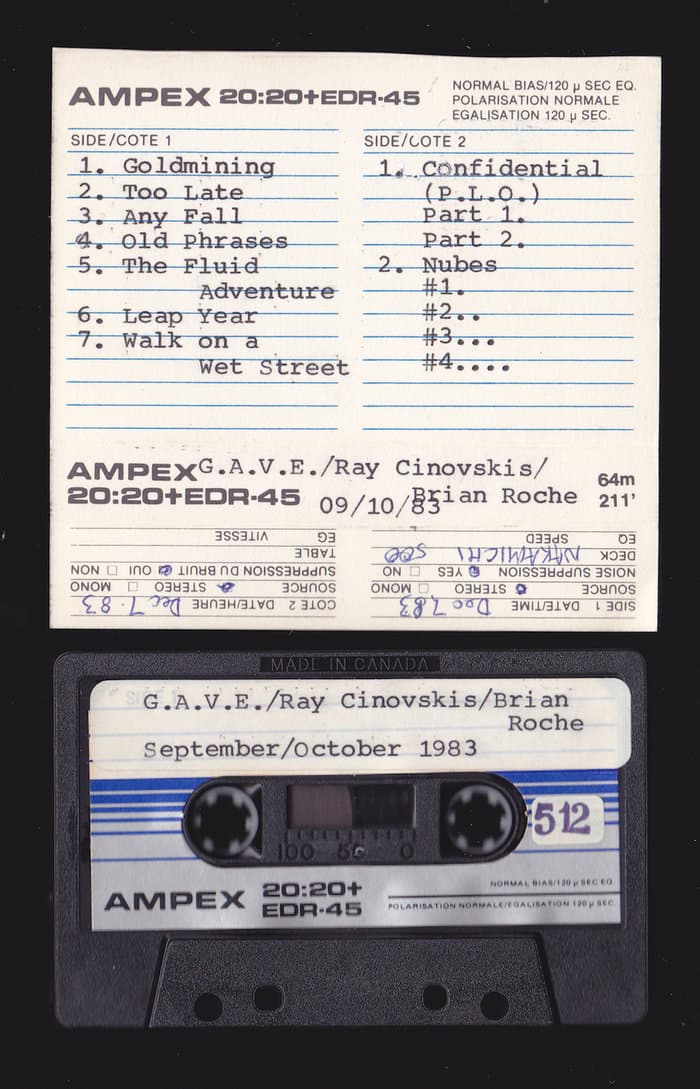 AMPEX 20:20+EDR-45
NORMAL BIAS/120 µ SEC EQ.
POLARISATION NORMALE
EGALISATION 120 µ SEC.
SIDE/COTE 1
1. Goldmining
2. Too Late
3. Any Fall
4. Old Phrases
5. The Fluid
Adventure
6. Leap Year
7. Walk on a
Wet Street
SIDE/COTE 2
1. Confidential
(P.L.O.)
Part 1.
Part 2.
2. Nubes
#1.
#2..
#3...
#4....
AMPEX
20:20+EDR-45
G.A.V.E./Ray Cinovskis/
Brian Roche
09/10/83
64m
211'
SIDE 1 DATE/TIME Dec 7, 83
SOURCE STEREO MONO
NOISE SUPPRESSION YES NO
DECK NAKAMICHI
EQ SPEED
COTE 2 DATE/HEURE Dec 7. 83
SOURCE STEREO MONO
SUPPRESSION DU BRUIT OUI NON
TABLE
EG VITESSE
MADE IN CANADA
SIDE 1
G.A.V.E./Ray Cinovskis/Brian
Roche
September/October 1983
512
100 50 0
AMPEX 20:20+
EDR-45
NORMAL BIAS/120 µ SEC EQ.
POLARISATION NORMALE/EGALISATION 120 µ SEC.